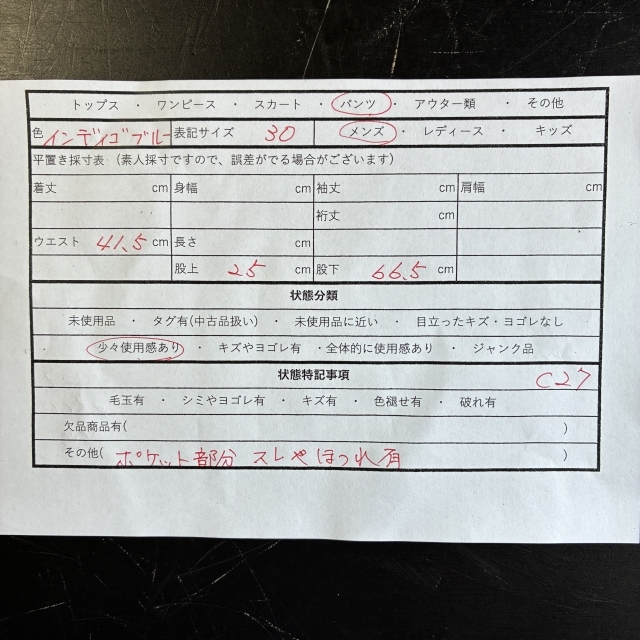 トップス ・ ワンピース ・ スカート ・ パンツ ・ アウター類 ・ その他
色 インディゴブルー 表記サイズ 30 メンズ ・ レディース ・ キッズ
平置き採寸表（素人採寸ですので、誤差がでる場合がございます）
着丈 cm 身幅 cm 袖丈 cm 肩幅 cm
裄丈 cm
ウエスト 41.5 cm 長さ cm
股上 25 cm 股下 66.5 cm
状態分類
未使用品 ・ タグ有(中古品扱い) ・ 未使用品に近い ・ 目立ったキズ・ヨゴレなし
少々使用感あり ・ キズやヨゴレ有 ・全体的に使用感あり ・ ジャンク品
状態特記事項 C27
毛玉有 ・ シミやヨゴレ有 ・ キズ有 ・ 色褪せ有 ・ 破れ有
欠品商品有( )
その他( ポケット部分 スレやほつれ有 )